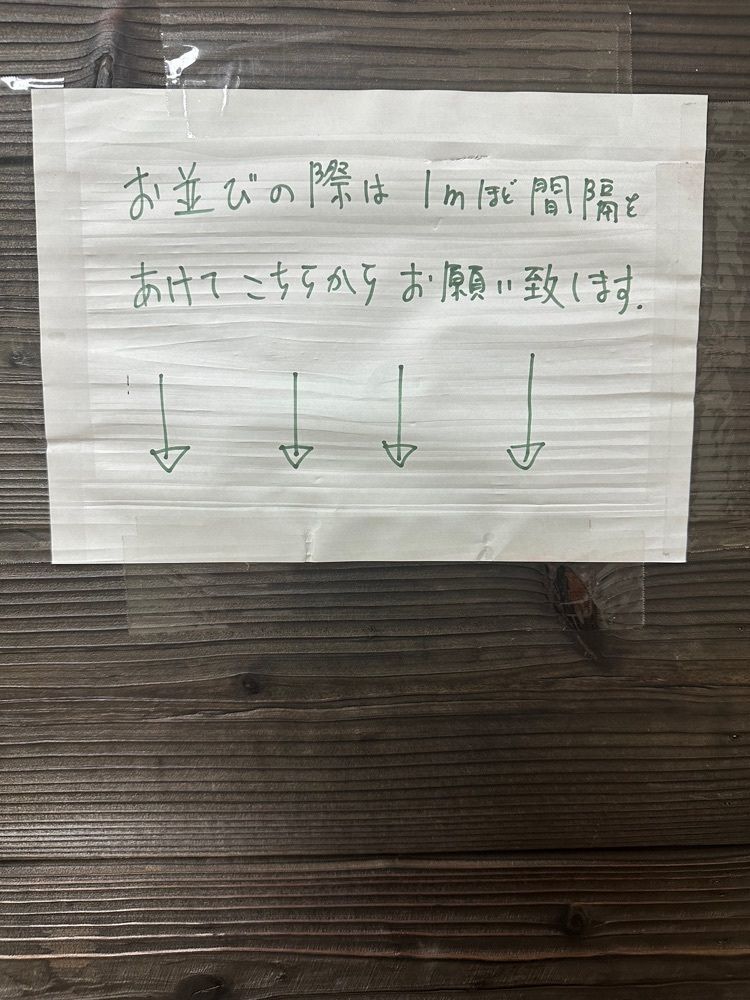 お並びの際は 1mほど間隔を
あけてこちらから お願い致します.